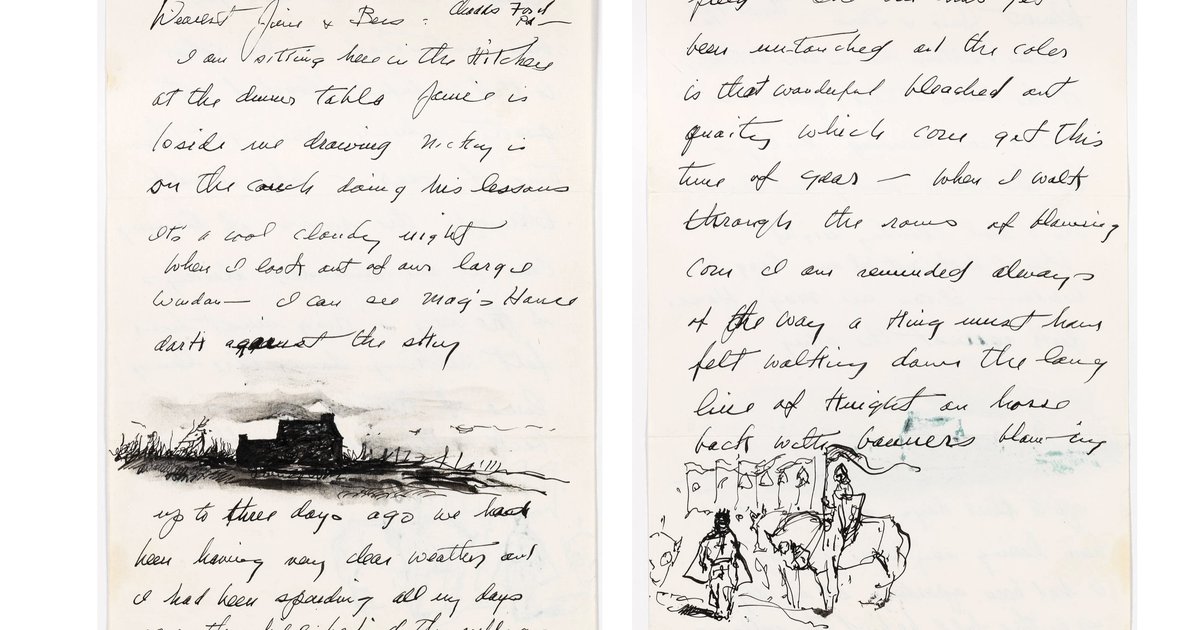 Dearest Jimie & Bess - Chadds Ford Pa -
I am sitting here in the Kitchen
at the dinner table Jamie is
beside me drawing Nicky is
on the couch doing his lessons
it's a cool cloudy night
When I look out of our large
window— I can see Mag's House
dark against the sky
up to three days ago we had
been having very clear weather and
I had been spending all my days
been un-touched and the color
is that wonderful bleached out
quaity which corn get this
time of year — when I walk
through the rows of blowing
corn I am reminded always
of the way a King must have
felt walking down the long
line of Knight on horse
back with banners blowing